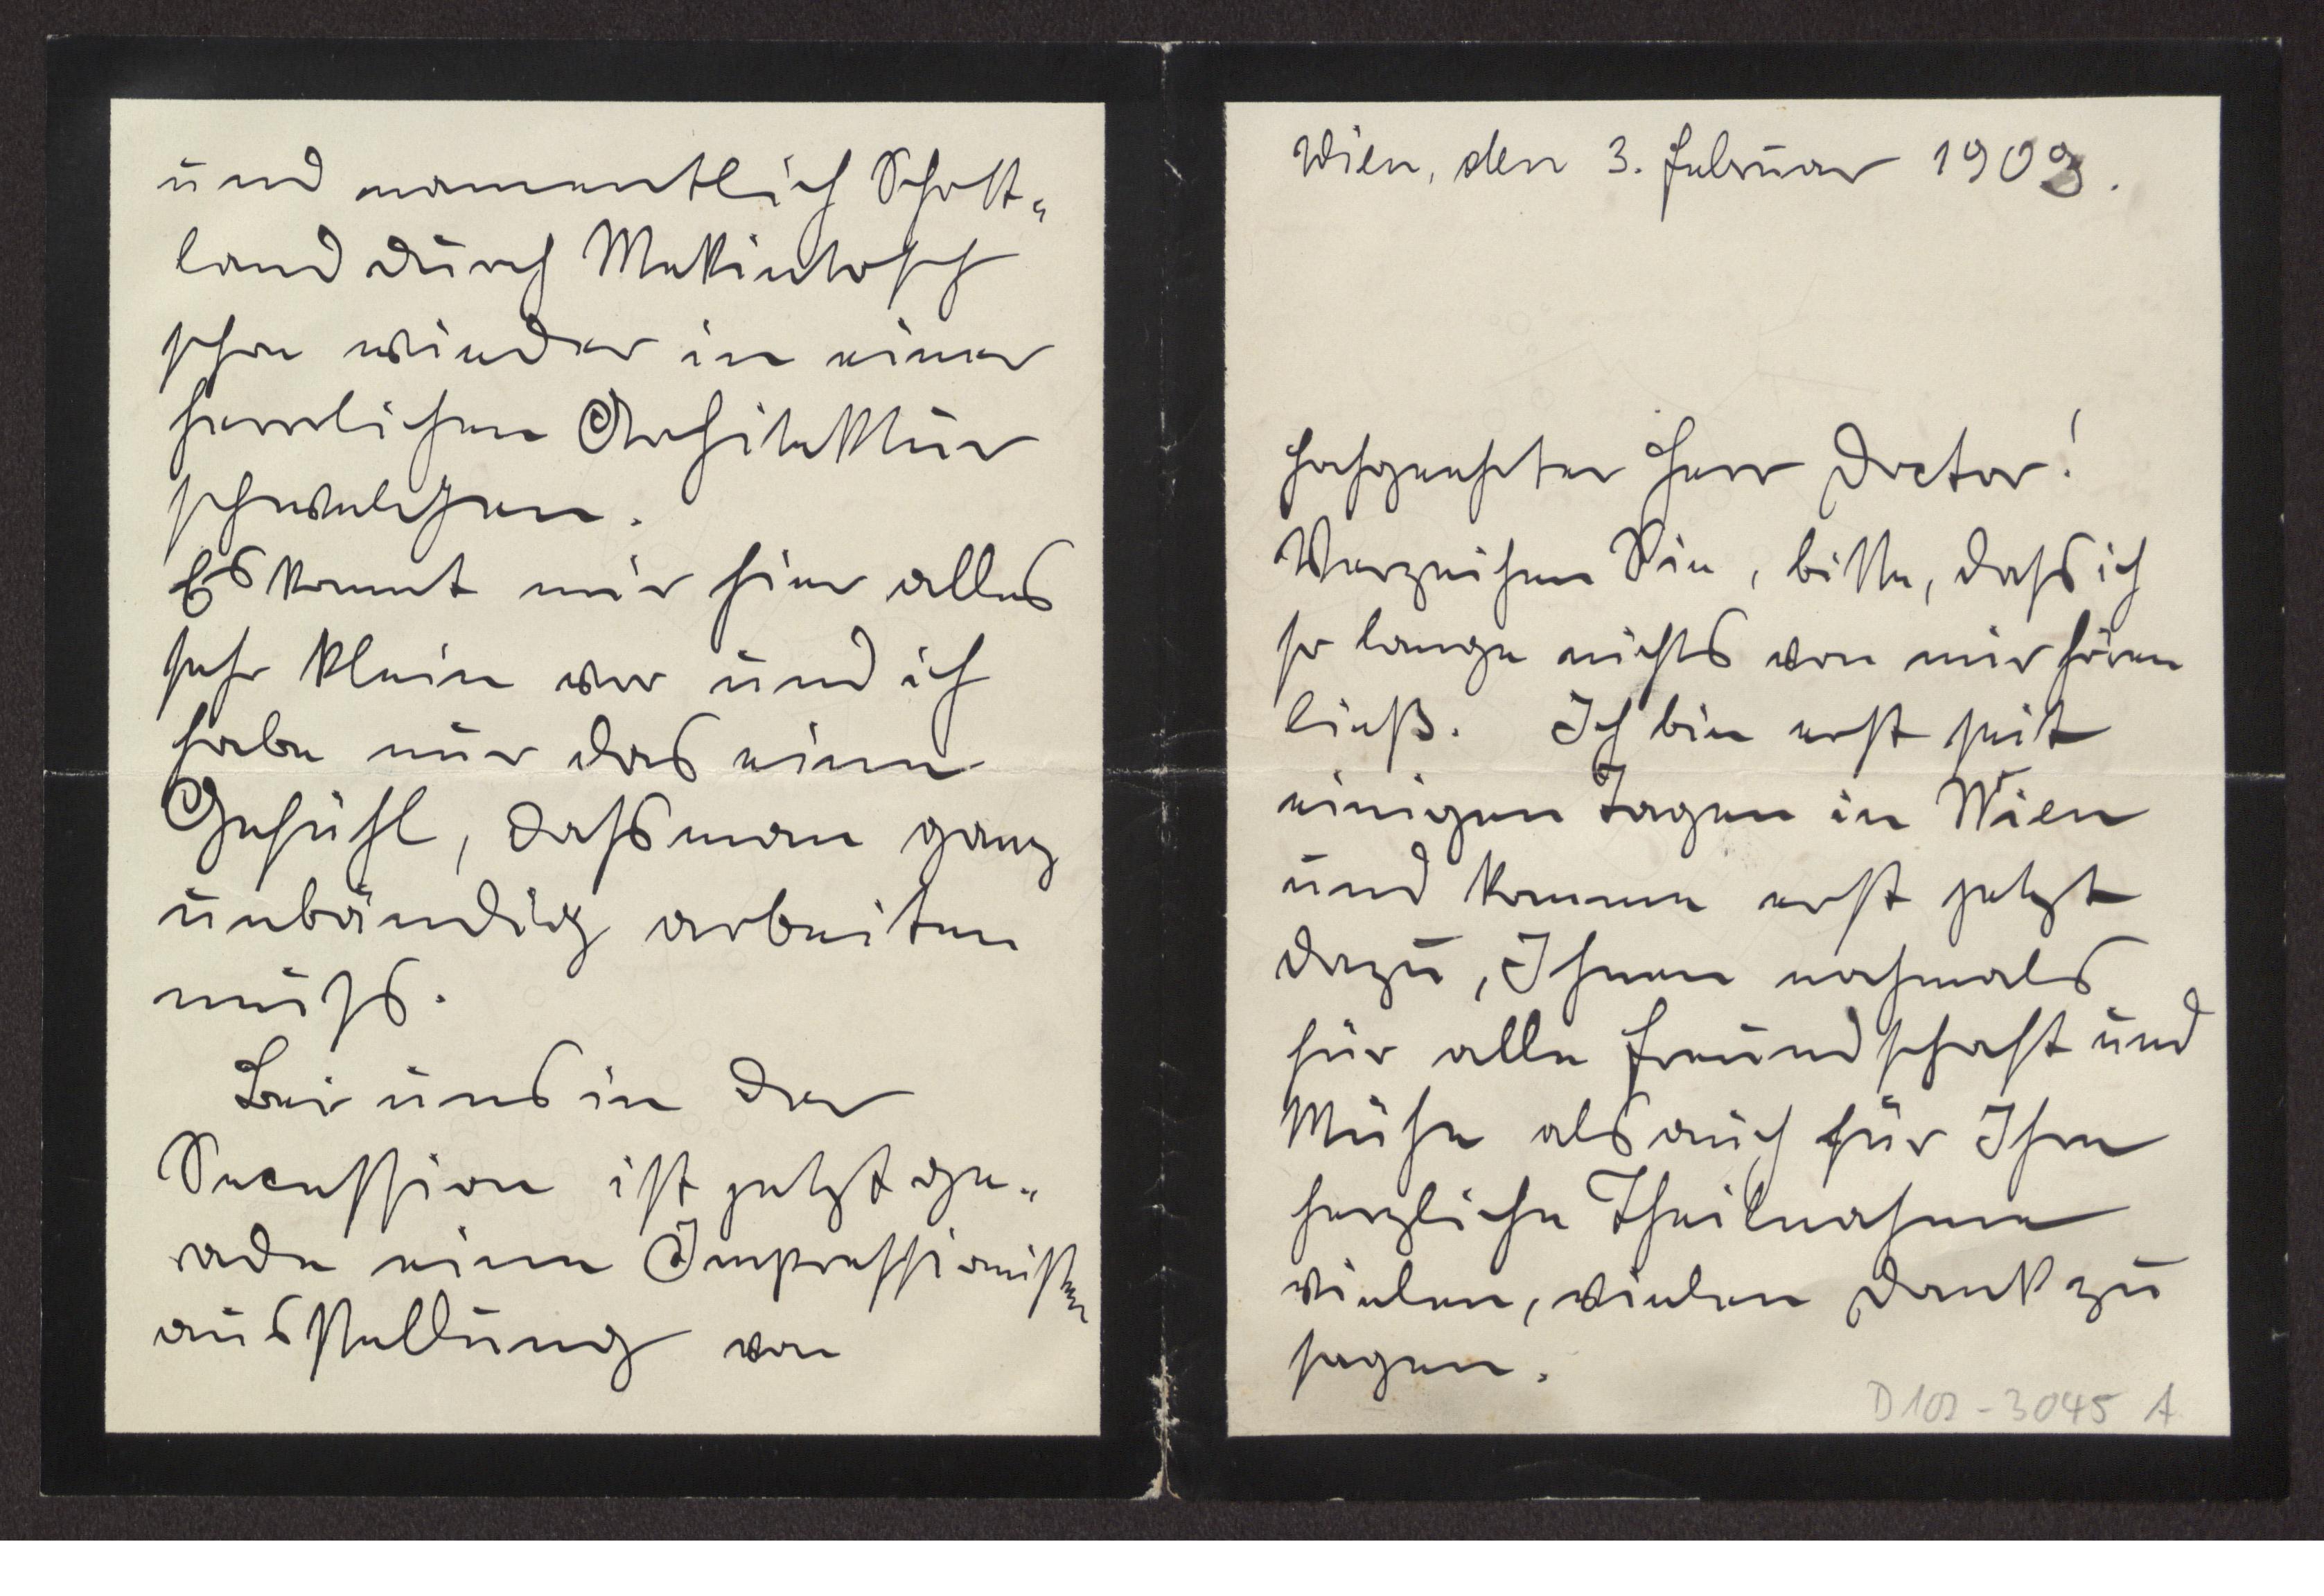 Wien, den 3. Februar 1903.
Hochgeehrter Herr Doctor!
Verzeihen Sie, bitte, dass ich
so lange nichts von mir hören
ließ. Ich bin erst seit
einigen Tagen in Wien
und komme erst jetzt
dazu, Ihnen nochmals
für alle Freundschaft und
Mühe als auch für Ihre
herzliche Theilnahme
vielen, vielen Dank zu
sagen.
D 102-3045 A
und namentlich Schott-
land durch Mekintosch
schon wieder in einer
herrlichen Architektur
schwelgen.
Es kommt mir hier alles
sehr klein vor und ich
habe nur das eine
Gefühl, dass man ganz
unbändig arbeiten
muss.
Bei uns in der
Secession ist jetzt ge-
rade eine Impressionisten
ausstellung von